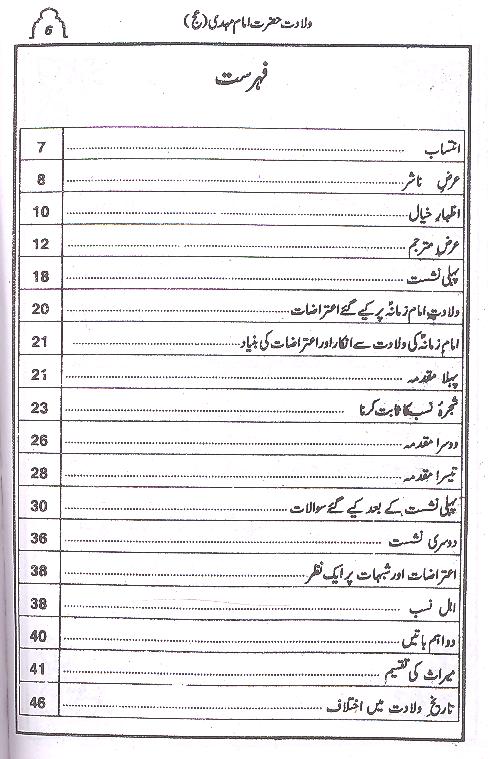 ولادت حضرت امام مہدی (عج) 6
فہرست
انتساب 7
عرضِ ناشر 8
اظہارِ خیال 10
عرضِ مترجم 12
پہلی نشست 18
ولادتِ امام زمانہؑ پر کیے گئے اعتراضات 20
امام زمانہؑ کی ولادت سے انکار اور اعتراضات کی بنیاد 21
پہلا مقدمہ 21
شجرۂ نسب کا ثابت کرنا 23
دوسرا مقدمہ 26
تیسرا مقدمہ 28
پہلی نشست کے بعد کیے گئے سوالات 30
دوسری نشست 36
اعتراضات اور شبہات پر ایک نظر 38
اہل نسب 38
دو اہم باتیں 40
میراث کی تقسیم 41
تاریخِ ولادت میں اختلاف 46